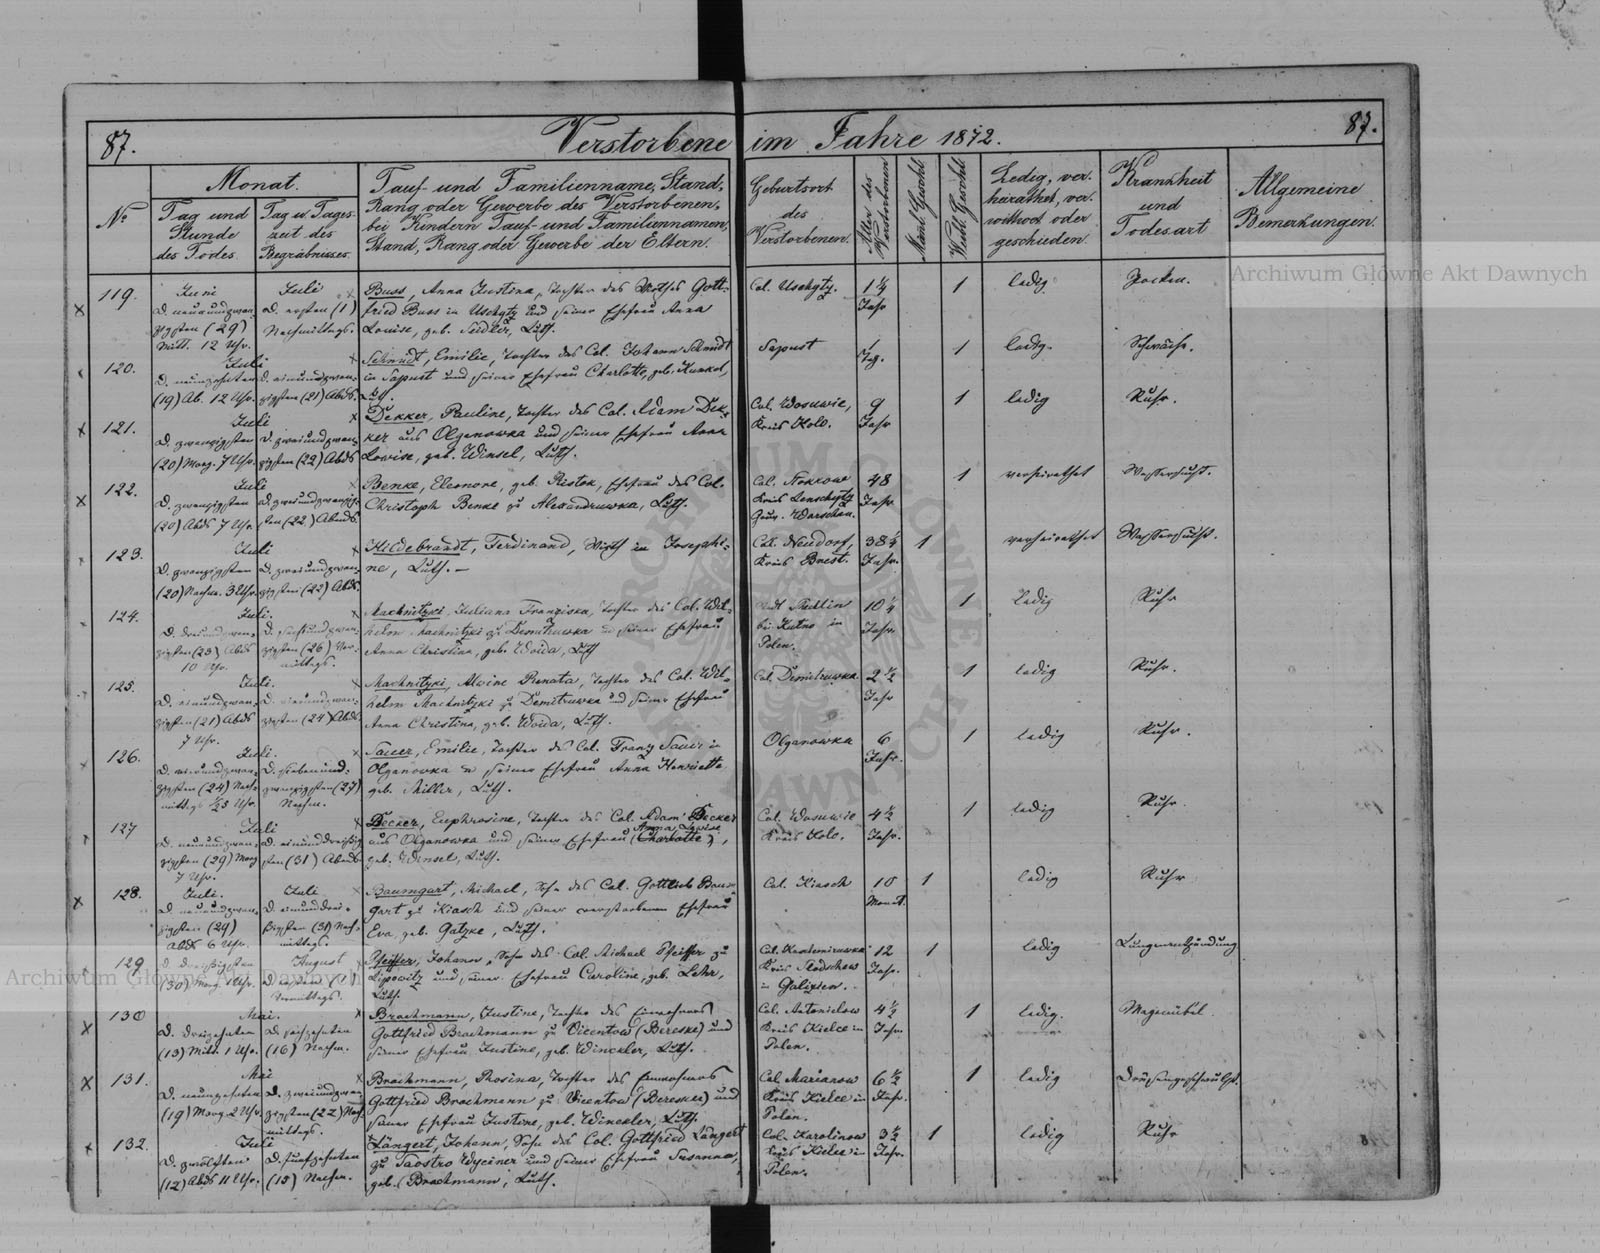 87.
Verstorbene im Jahre 1872.
87.
No
Monat.
Tag und
Stunde
des Todes.
Tag u. Tages-
zeit des
Begräbnisses.
Tauf- und Familienname, Stand,
Rang oder Gewerbe des Verstorbenen,
bei Kindern Tauf- und Familiennamen,
Stand, Rang oder Gewerbe der Eltern.
Geburtsort
des
Verstorbenen.
Alter des
Verstorbenen
Männl. Geschlt
Weibl. Geschlt
Ledig, ver-
heirathet, ver-
wittwet oder
geschieden.
Krankheit
und
Todesart
Allgemeine
Bemerkungen.
119.
Juni
D. neunundzwan-
zigsten (29)
Mitt. 12 Uhr.
Juli
D. ersten (1)
Nachmittags.
Buss, Anna Justina, Tochter des Wirthes Gott-
fried Buss in Uschgtz und seiner Ehefrau Anna
Louise, geb. Sidler, Luth.
Col. Uschgtz.
1 1/4
Jahr
1
ledig.
Pocken.
120.
Juli
D. neunzehnten
(19) Ab. 12 Uhr.
D. einundzwan-
zigsten (21) Abds.
Schmidt, Emilie, Tochter des Col. Johann Schmidt
in Sapust und seiner Ehefrau Charlotte, geb. Kunkel,
Luth.
Sapust
1
Tag.
1
ledig.
Schwäche.
121.
Juli
D. zwanzigsten
(20) Morg. 7 Uhr.
D. zweiundzwan-
zigsten (22) Abds
Dekker, Pauline, Tochter des Col. Adam Dek-
ker aus Olganowka und seiner Ehefrau Anna
Lowise, geb. Winsel, Luth.
Col. Wosuwie,
Kreis Kolo.
9
Jahr
1
ledig
Ruhr.
122.
Juli
D. zwanzigsten
(20) Abds 7 Uhr
D. zweiundzwanzig-
sten (22) Abends
Benke, Eleonore, geb. Ristok, Ehefrau des Col.
Christoph Benke zu Alexandruwka, Luth.
Col. Nokkow
Kreis Lenschytz
Gouv. Warschau.
48
Jahr.
1
verheirathet
Wassersucht.
123.
Juli
D. zwanzigsten
(20) Nachm. 3 Uhr.
D. zweiundzwan-
zigsten (22) Abds.
Hildebrandt, Ferdinand, Wirth in Josephi-
ne, Luth. —
Col. Neudorf,
Kreis Brest.
38 1/4
Jahr.
1
verheirathet
Wassersucht.
124.
Juli.
D. dreiundzwan-
zigsten (23) Abds
10 Uhr.
D. sechsundzwan-
zigsten (26) Vor-
mittags.
Machnitzki, Juliana Franziska, Tochter des Col. Wil-
helm Machnitzki zu Demitruwka u. seiner Ehefrau
Anna Christina, geb. Woida, Luth
bei Kutno in
Polen.
10 1/4
Jahr.
1
Ledig
Ruhr
125.
Juli.
D. einundzwan-
zigsten (21) Abds
7 Uhr.
D. vierundzwan-
zigsten (24) Abds.
Machnitzki, Alwine Renata, Tochter des Col. Wil-
helm Machnitzki zu Demitruwka und seiner Ehefrau
Anna Christina, geb. Woida, Luth.
Col. Demitruwka.
2 1/2
Jahr
1
ledig
Ruhr.
126.
Juli.
D. vierundzwan-
zigsten (24) Nach-
mittgs 1/2 5 Uhr.
D. siebenund-
zwanzigsten (27)
Nachm.
Sauer, Emilie, Tochter des Col. Franz Sauer in
Olganowka u. seiner Ehefrau Anna Henriette
geb. Miller, Luth.
Olganowka
6
Jahr.
1
ledig
Ruhr.
127
Juli
D. neunundzwan-
zigsten (29) Morg
7 Uhr.
D. einunddreißig-
sten (31) Abends
Decker, Euphrosine, Tochter des Col. Adam Decker
Anna Lowise
aus Olganowka und seiner Ehefrau (Charlotte),
geb. Winsel, Luth.
Col. Wosuwie
Kreis Kolo.
4 1/2
Jahr.
1
ledig
Ruhr.
128.
Juli.
D. neunundzwan-
zigsten (29)
Abds 6 Uhr.
Juli
D. einunddrei-
ßigsten (31) Nach-
mittags.
Baumgart, Michael, Sohn des Col. Gottlieb Baum-
gart zu Kiasch und seiner verstorbenen Ehefrau
Eva, geb. Gatzke, Luth.
Col. Kiasch
10
Monat.
1
ledig
Ruhr
129
D. dreißigsten
(30) Morg. 1 Uhr.
August
D. ersten (1)
Vormittags.
Pfeiffer, Johann, Sohn des Col. Michael Pfeiffer zu
Lipowitz und seiner Ehefrau Caroline, geb. Lehr,
Luth.
Col. Kasimiruwka
in Galizien.
12
Jahr.
1
ledig
Lungenentzündung
130
Mai.
D. dreizehnten
(13) Mitt. 1 Uhr.
D. sechzehnten
(16) Nachm.
Brockmann, Justine, Tochter des Einwohners
Gottfried Brockmann zu Vicentow (Bereske) und
seiner Ehefrau Justine, geb. Winckler, Luth.
Col. Antonielow
Kreis Kielce in
Polen.
4 1/2
Jahr.
1
ledig.
Magenübel.
131.
Mai
D. neunzehnten
(19) Morg. 2 Uhr.
D. zweiundzwan-
zigsten (22) Nach-
mittags.
Brockmann, Rosina, Tochter des Einwohners
Gottfried Brockmann zu Vicentow (Bereske) und
seiner Ehefrau Justine, geb. Winckler, Luth.
Col. Marianow
Kreis Kielce in
Polen.
6 1/2
Jahr.
1
ledig
Drüsengeschwulst.
132.
Juli
D. zwölften
(12) Abds 11 Uhr.
D. fünfzehnten
(15) Nachm.
Längert, Johann, Sohn des Col. Gottfried Längert
zu Saostro Wyciner und seiner Ehefrau Susanna,
geb. Brockmann, Luth.
Col. Karolinow
Kreis Kielce in
Polen.
3 1/2
Jahr.
1
ledig
Ruhr
Archiwum Główne Akt Dawnych
Archiwum Główne Akt Dawnych
ARCHIWUM GŁÓWNE AKT DAWNYCH